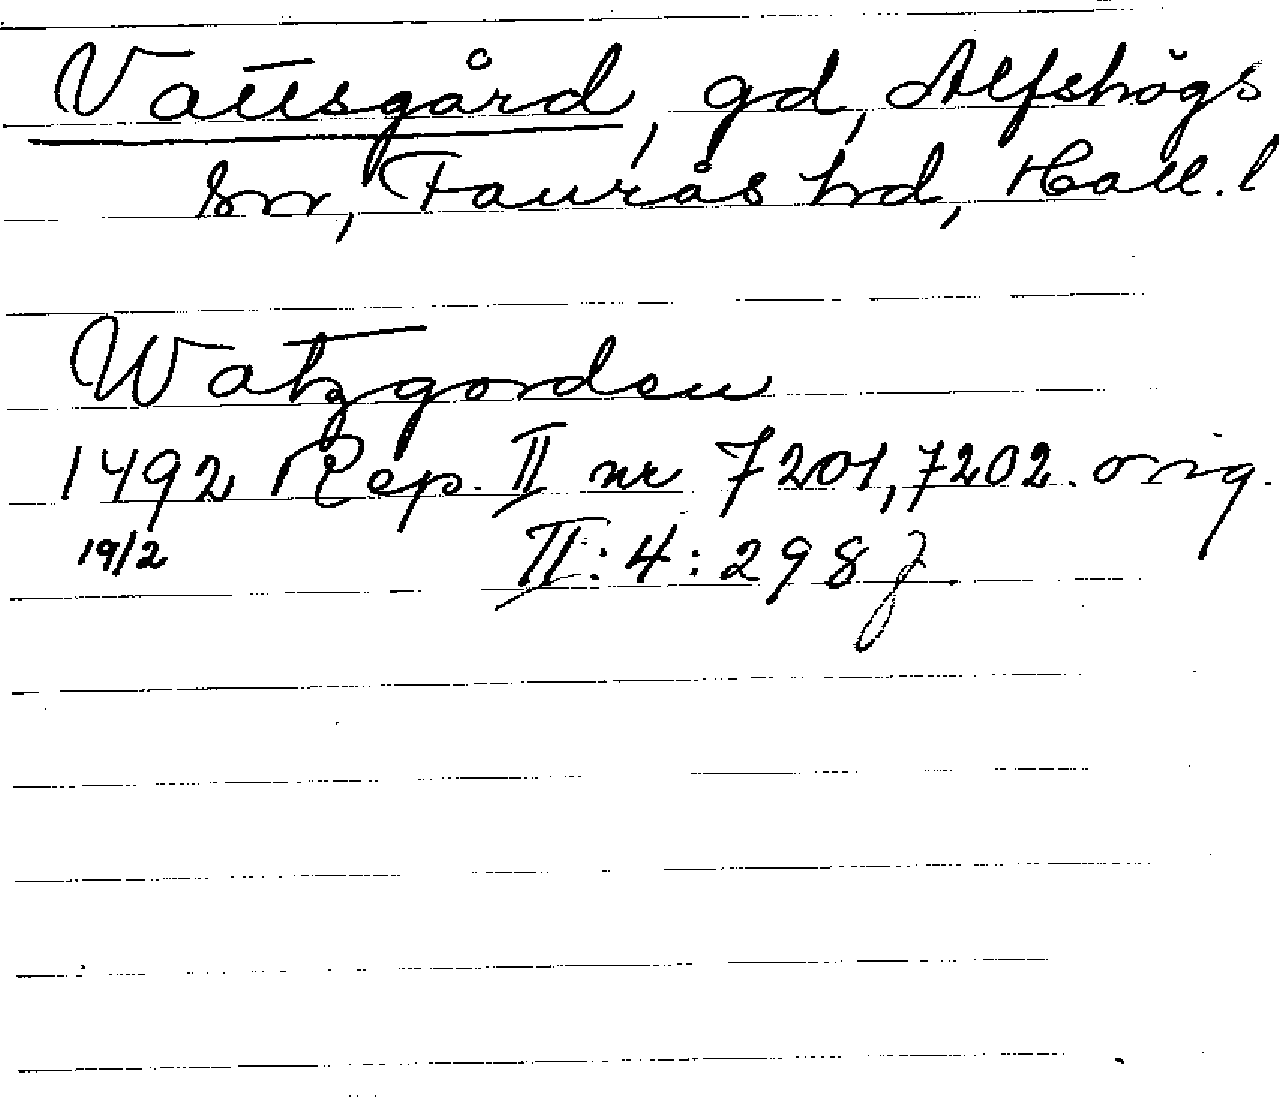 Vattsgård, gd, Alfshögs
sn, Faurås hrd, Hall. l
Watzgorden
1492 Rep. II nr 7201, 7202. orig.
19/2 II:4:298 f